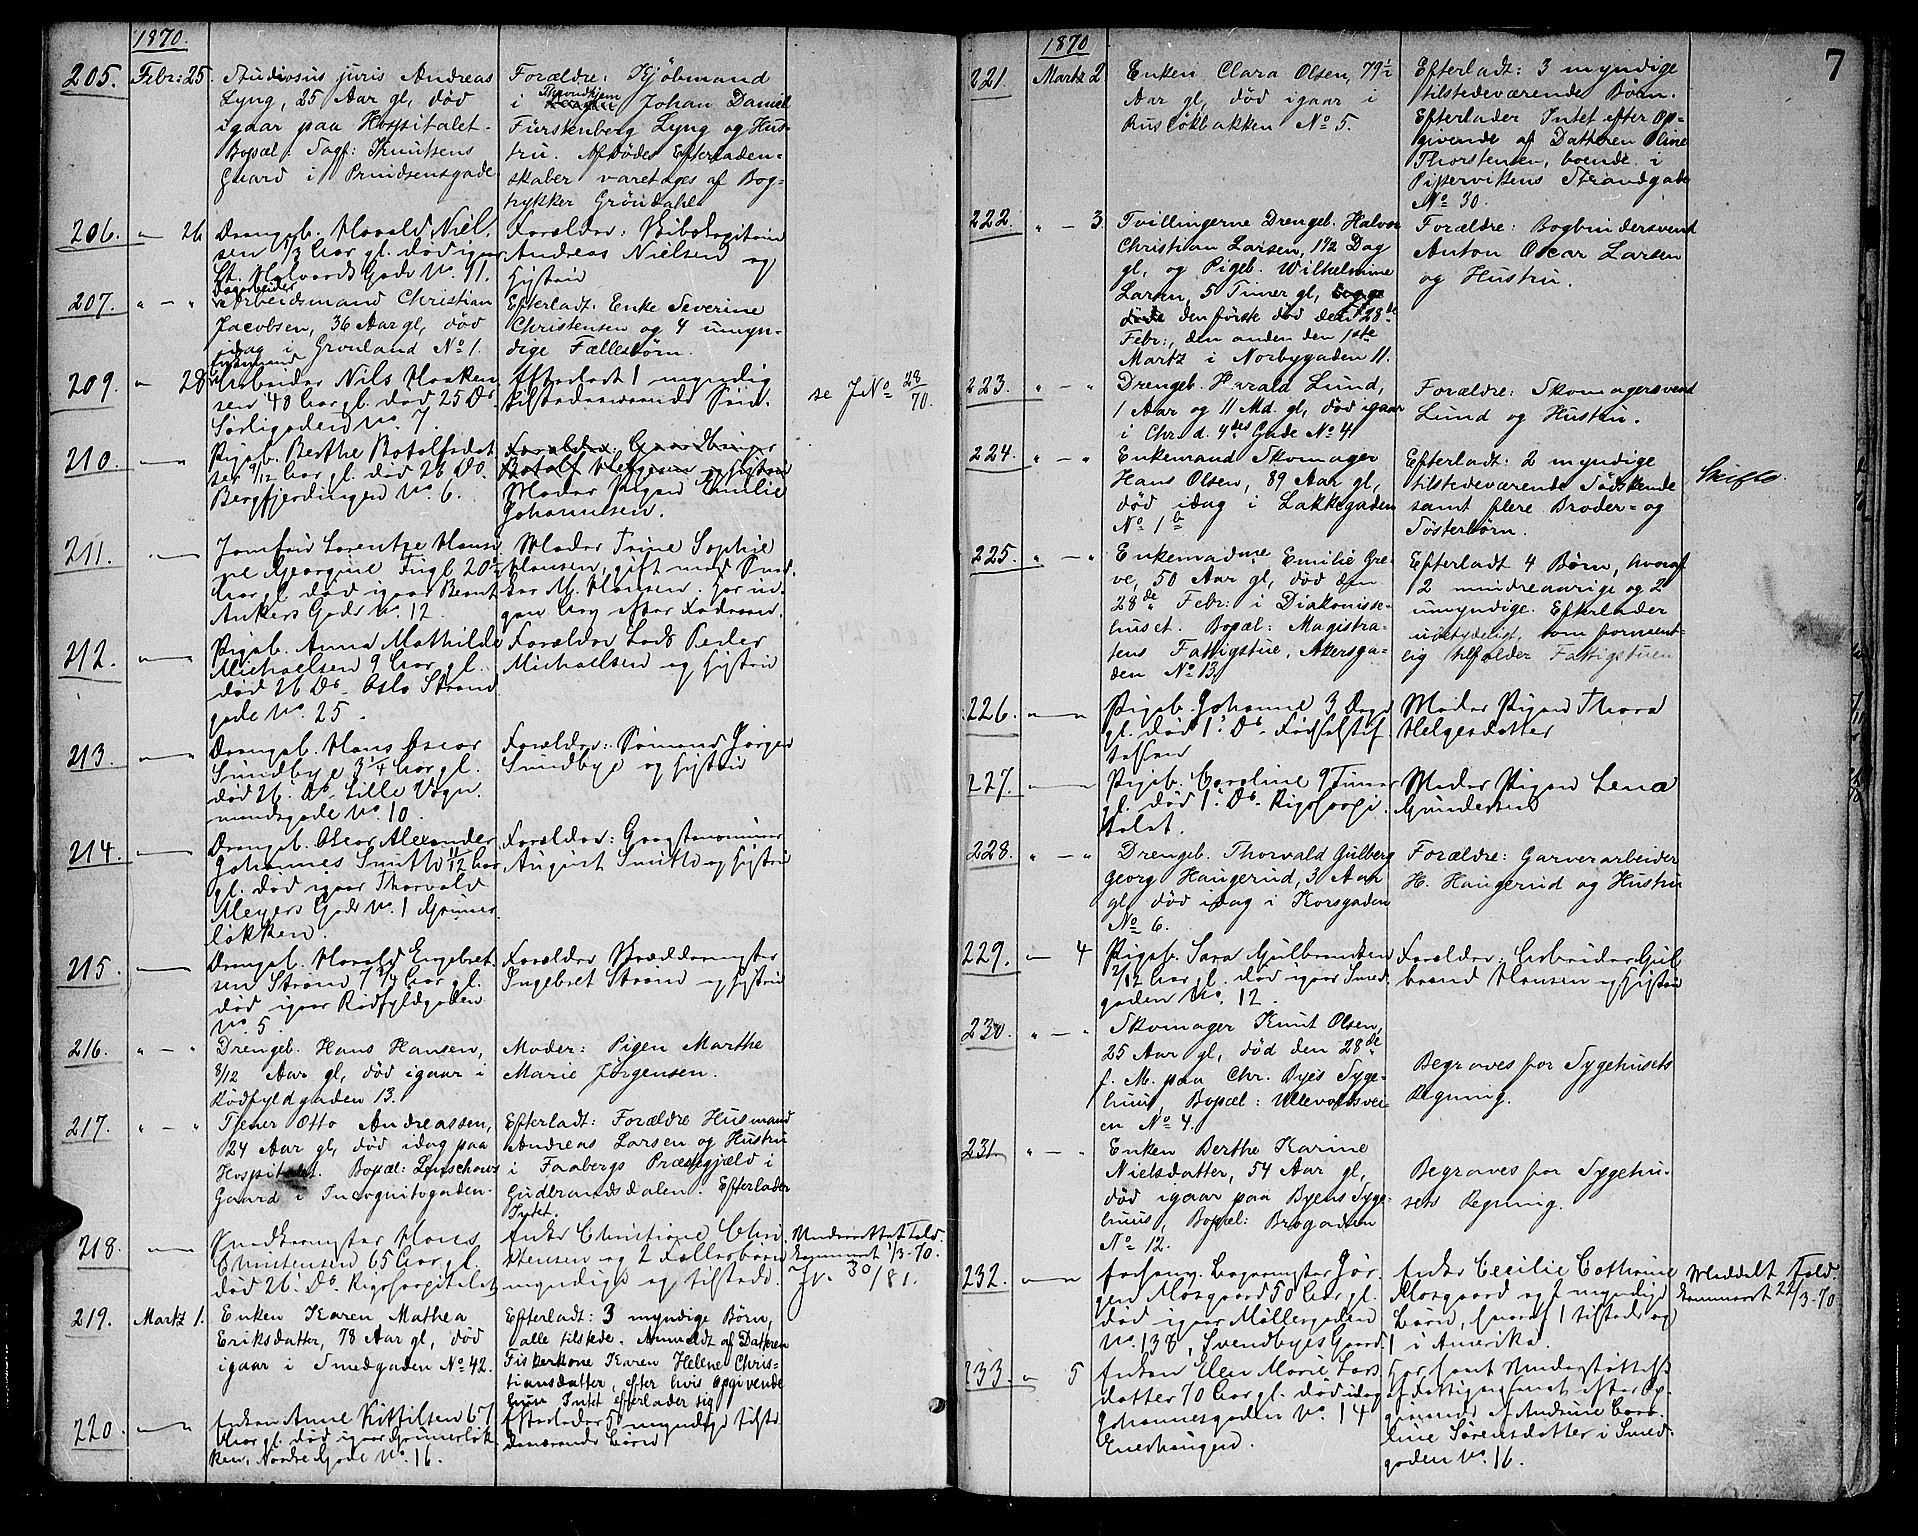 1870.
205. Febr: 25. Studiosus juris Andreas
Lyng, 25 Aar gl, død
igaar paa Hospitalet.
Bopæl: Sagf: Knutsens
Gaard i Prindsensgade
Forældre: Kjøbmand
i Throndhjem Johan Daniel
Fürstenberg Lyng og Hus-
tru. Afdødes Efterladen-
skaber varetages af Bog-
trykker Gröndahl
206. — 26 Drengeb. Harald Niel-
sen 1/3 Aar gl. død igaar
St. Halvards Gade No. 11.
Forældre:
Andreas Nielsen og
Hustru
207. " — " Dagarbeider
Arbeidsmand Christian
Jacobsen, 36 Aar gl, død
idag i Grønland No 1.
Efterladt: Enke Severine
Christensen og 4 umyn-
dige Fællesbørn.
209. — 28 Arbeider Nils Haaken-
sen 48 Aar gl. død 25 Ds
Sørligaden No. 7.
Efterladt 1 myndig
tilstedeværende Søn.
se JNo 28/70.
210. — " Pigeb. Berthe Botolfsdat-
ter 9/12 Aar gl. død 26 Ds.
Bergfjerdingen No 6.
Forældre: Gaardbruger
Botolf Helgesen og Hustru
Moder Pigen Emilie
Johannesen.
211. — Jomfru Lorentze Hansi-
ne Georgine Fugl 20 1/2
Aar gl. død igaar Bernt
Ankers Gade No. 12.
Moder Trine Sophie
Hansen, gift med Sned-
ker M. Hansen. Har in-
gen Arv efter Faderen.
212. — " Pigeb. Anna Mathilde
Michaelsen 9 Aar gl.
død 26 Ds. Oslo Strand-
gade No. 25.
Forældre: Lods Peder
Michaelsen og Hustru
213. — " Drengeb. Hans Oscar
Sundbye 3 1/4 Aar gl.
død 26. Ds. Lille Vogn-
mandsgade No. 10.
Forældre: Sømand Jørgen
Sundbye og Hustru
214. — Drengeb. Oscar Alexander
Johannes Smith 11/12 Aar
gl. død igaar Thorvald
Meyers Gade No. 1 Grüner-
løkken.
Forældre:
August Smith og Hustru
215. — Drengeb. Harald Engebret-
sen Strand 7 3/4 Aar gl.
død igaar Rødfyldgaden
No. 5.
Forældre Bræddemester
Ingebret Strand og Hustru
216. " — " Drengeb. Hans Hansen,
8/12 Aar gl, død igaar i
Rødfyldgaden 13.
Moder: Pigen Marthe
Marie Jörgensen.
217. " — " Tjener Otto Andreassen,
24 Aar gl, død idag paa
Hospitalet. Bopæl: Lenschows
Gaard i Incognitogaden.
Efterladt: Forældre Husmand
Andreas Larsen og Hustru
i Faabergs Præstegjæld i
Gudbrandsdalen. Efterlader
Intet.
218. — Hans
Christensen 65 Aar gl.
død 26. Ds. Rigshospitalet
Enke Christiane Chri-
stensen og 2 Fællesbørn
myndige og tilstede.
Underrettet Told-
kammeret 1/3-70.
Jr. 30/81.
219. Martz 1. Enken Karen Mathea
Eriksdatter, 78 Aar gl, død
igaar i Smedgaden No 42.
Efterladt: 3 myndige Børn,
alle tilstede. Anmeldt af Datteren
Fiskerkone Karen Helene Chris-
tiansdatter, efter hvis Opgivende
hun Intet efterlader sig
220. — Enken Anne Kittilsen 67
Aar gl. død igaar Grünerløk-
ken, Nordre Gade No. 16.
Efterlader 5 myndige tilste-
deværende Børn
7
1870
221. Martz 2 Enken Clara Olsen, 79 1/2
Aar gl, død igaar i
Rusløkbakken No 5.
Efterladt: 3 myndige
tilstedeværende Børn.
Efterlader Intet efter Op-
givende af Datteren Oline
Thorstensen, boende i
Pipervikens Strandgade
No 30.
222. " — 3. Tvillingerne Drengeb. Halvor
Christian Larsen, 1 1/2 Dag
gl, og Pigeb. Wilhelmine
Larsen, 5 Timer gl, begge
døde den første død den 28de
Febr:, den anden den 1ste
Martz i Norbygaden 11.
Forældre: Bogbindersvend
Anton Oscar Larsen
og Hustru.
223. " — " Drengeb. Harald Lund,
1 Aar og 11 Md. gl, død igaar
i Chr. d. 4des Gade No 41
Forældre: Skomagersvend
Lund og Hustru.
224. " — " Enkemand Skomager
Hans Olsen, 89 Aar gl,
død idag i Lakkegaden
No 1b
Efterladt: 2 myndige
tilstedeværende Sødskende
samt flere Broder- og
Søsterbørn.
Skifte.
225. " — " Enkemadme Emilie Gre-
ve, 50 Aar gl, død den
28de Febr: i Diakonisse-
huset. Bopæl: Magistra-
tens Fattigstue, Akersga-
den No 13.
Efterladt 4 Børn, hvoraf
2 mindreaarige og 2
umyndige. Efterlader
ubetydeligt, som forment-
lig tilfalder Fattigstuen
226. — " Pigeb. Johanne 3 Dage
gl. død 1. Ds. Fødselsstif-
telsen
Moder Pigen Thora
Helgesdatter
227. — Pigeb. Caroline 9 Timer
gl. død 1. Ds. Rigshospi-
talet.
Moder Pigen Lena
Gundersen
228. " — " Drengeb. Thorvald Gulberg
Georg Haugerud, 3 Aar
gl, død idag i Korsgaden
No 6.
Forældre: Garverarbeider
H. Haugerud og Hustru
229. — 4 Pigeb. Sara Gulbrandsen
2/12 Aar gl. død igaar Smed-
gaden No. 12.
Forældre: Arbeider Gul-
brand Hansen og Hustru
230. " — " Skomager Knut Olsen,
25 Aar gl, død den 28de
f. M. paa Chr. Byes Syge-
huus, Bopæl: Ullevoldsvei-
en No 4.
Begraves for Sygehusets
Regning.
231. " — " Enken Berthe Karine
Nielsdatter, 54 Aar gl,
død igaar paa Byens Syge-
huus, Bopæl: Brogaden
No 12.
Begraves for Sygehu-
sets Regning.
232. — " Jør-
gen Mosgaard 50 Aar gl.
død igaar Møllergaden
No. 138, Svendbyes Gaard.
Enke Cecilie Cathrine
Mosgaard og 2 myndige
Børn, hvoraf 1 tilstede og
1 i Amerika.
Meddelt Told-
kammeret 22/3-70
233. — 5 Enken Elen Marie Lars-
datter 70 Aar gl. død idag
Johannesgaden No. 14
Enerhaugen.
Har havt Understøttelse
af Fattigvæsenet efter Op-
givende af Andrine Caro-
line Sørensdatter i Smed-
gaden No. 16.